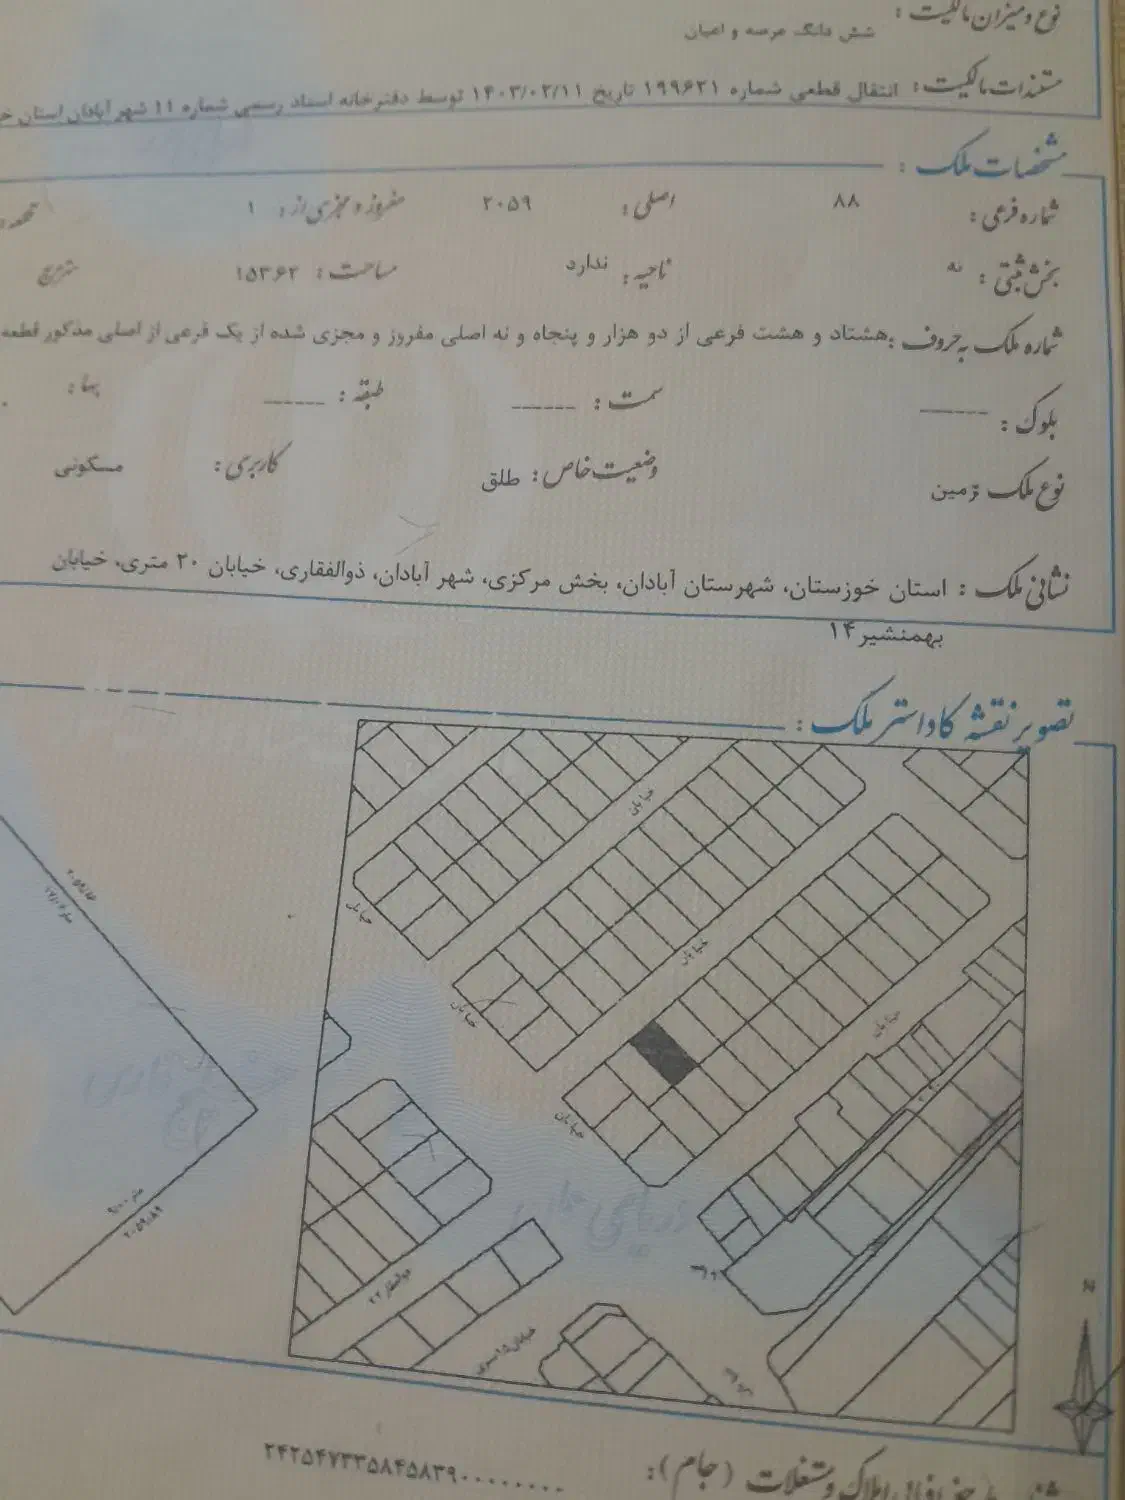 نوع و میزان مالکیت : شش دانگ عرصه و اعیان
مستندات مالکیت : انتقال قطعی شماره ۱۹۹۶۳۱ تاریخ ۱۴۰۳/۰۲/۱۱ توسط دفترخانه اسناد رسمی شماره 11 شهر آبادان استان
مشخصات ملک :
شماره فرعی : ۸۸ اصلی : ۲۰۵۹ مفروز و مجزی از : ۱
بخش ثبتی : نه ناحیه : ندارد مساحت : ۱۵۳.۶۲
شماره ملک به حروف : هشتاد و هشت فرعی از دو هزار و پنجاه و نه اصلی مفروز و مجزی شده از یک فرعی از اصلی مذکور قطعه
بلوک : ------ سمت : ------ طبقه : ------
نوع ملک : زمین وضعیت خاص : طلق کاربری : مسکونی
نشانی ملک : استان خوزستان، شهرستان آبادان، بخش مرکزی، شهر آبادان، ذوالفقاری، خیابان ۲۰ متری، خیابان
بهمنشیر۱۴
تصویر نقشه کاداستر ملک :
خیابان
خیابان
خیابان
خیابان
خیابان
خیابان
ذوالفقار ۲۲
N
۲۴۲۵۴۷۳۳۵۸۴۵۸۳۹۰۰۰۰۰۰۰۰